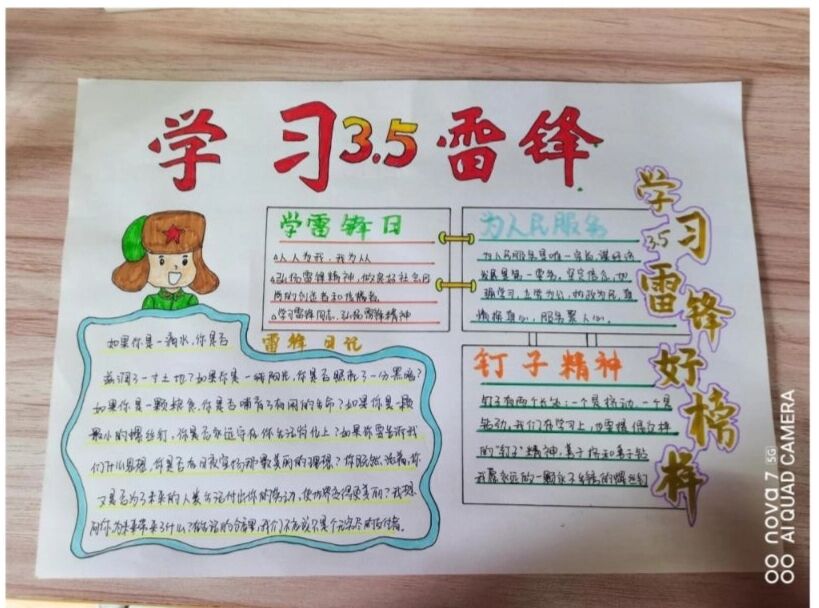 学习3.5雷锋
学雷锋日
人人为我，我为人人
弘扬雷锋精神，做良好社会风
尚的创造者和传播者
学习雷锋同志，弘扬雷锋精神
为人民服务
为人民服务是唯一宗旨，谋好
发展是第一要务，坚定信念，加
强学习，立党为公，执政为民，真
情换真心，服务聚人心。
学习
3.5
雷锋
好榜
样
雷锋日记
如果你是一滴水，你是否
滋润了一寸土地？如果你是一线阳光，你是否照亮了一分黑暗？
如果你是一颗粮食，你是否哺育了有用的生命？如果你是一颗
最小的螺丝钉，你是否永远守在你生活的岗位上？如果你要告诉我
们什么思想，你是否在日夜宣扬那最美丽的理想？你既然活着，你
又是否为了未来的人类生活付出你的劳动，使世界变得更美丽？我想
问你，为未来带来了什么？在生活的仓库里，我们不应该只是个无穷尽的支付者。
钉子精神
钉子有两个长处：一个是挤劲，一个是
钻劲，我们在学习上，也要提倡这种
的"钉子"精神，善于挤和善于钻
我愿永远做一颗永不生锈的螺丝钉
nova 7 5G
AI QUAD CAMERA